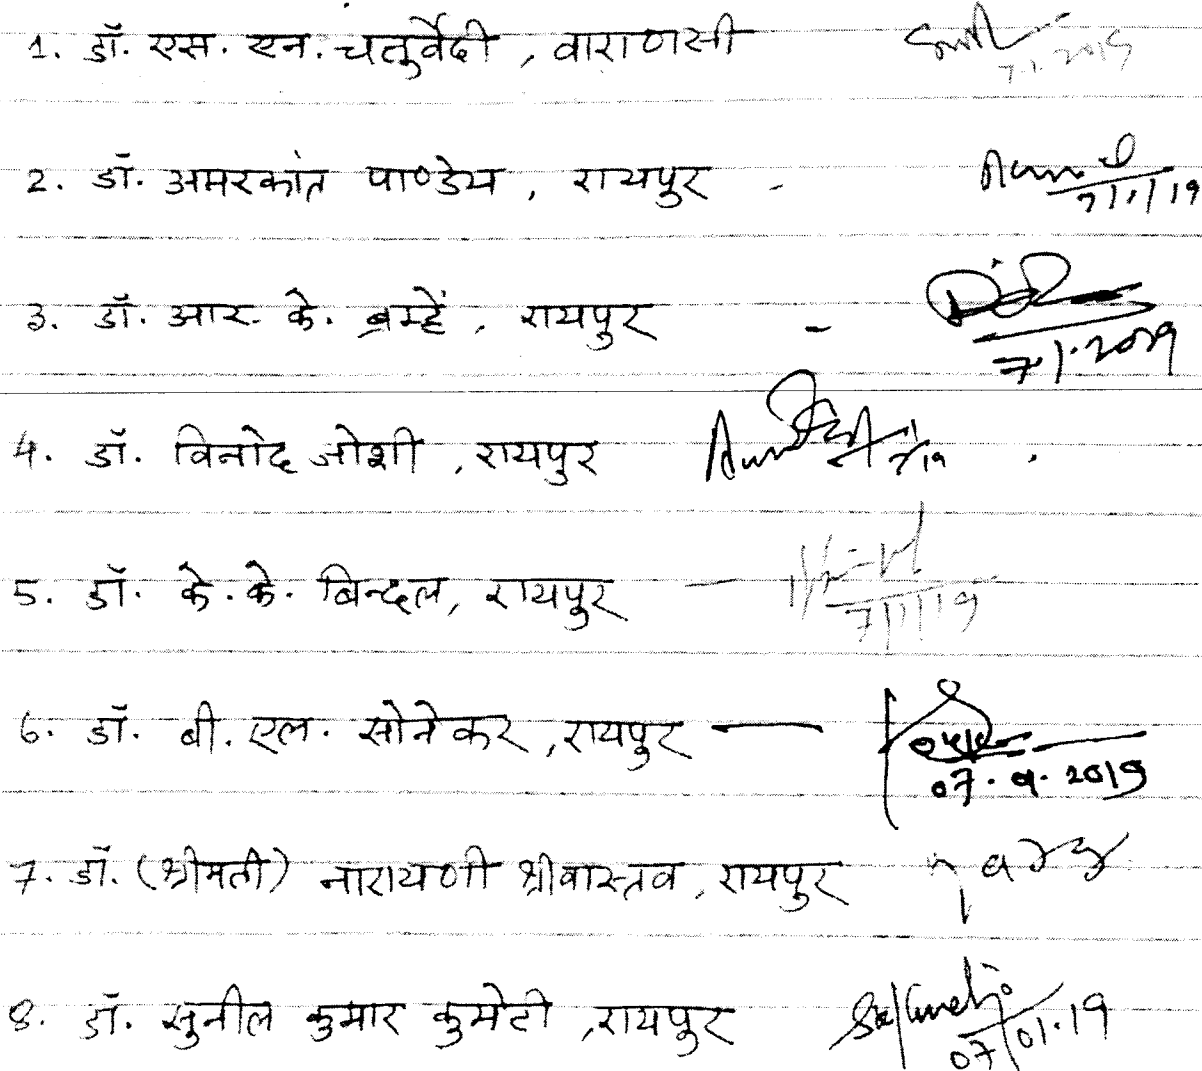 1. डॉ. एस. एन. चतुर्वेदी, वाराणसी 7.1.2019
2. डॉ. अमरकांत पाण्डेय, रायपुर - 7/1/19
3. डॉ. आर. के. ब्रम्हें, रायपुर - 7.1.2019
4. डॉ. विनोद जोशी, रायपुर
5. डॉ. के. के. बिन्दल, रायपुर — 7/1/19
6. डॉ. बी. एल. सोनेकर, रायपुर — 07.01.2019
7. डॉ. (श्रीमती) नारायणी श्रीवास्तव, रायपुर
8. डॉ. सुनील कुमार कुमेटी, रायपुर 07/01.19